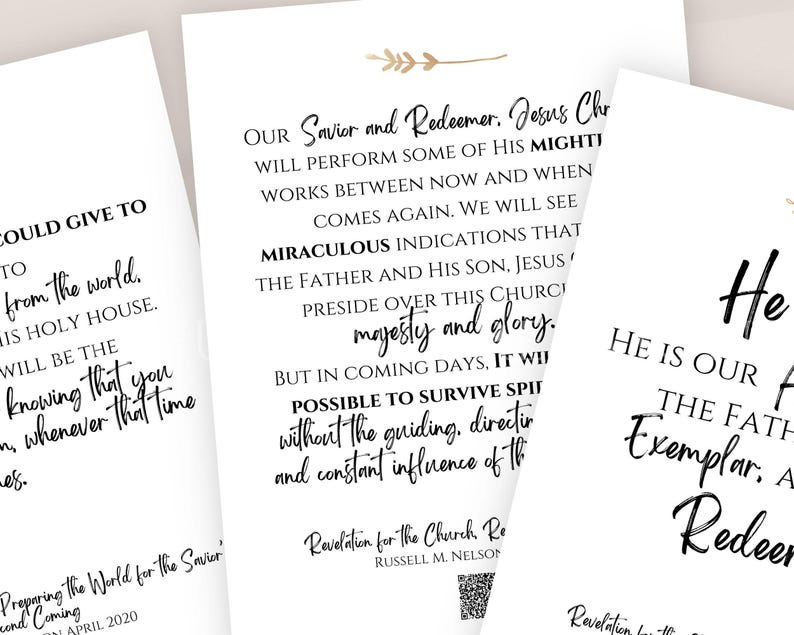 COULD GIVE TO
TO
from the world.
HIS HOLY HOUSE.
WILL BE THE
knowing that you
whenever that time
Preparing the World for the Savior'
Second Coming
ON APRIL 2020
OUR Savior and Redeemer, Jesus Chr
WILL PERFORM SOME OF HIS MIGHTI
WORKS BETWEEN NOW AND WHEN
COMES AGAIN. WE WILL SEE
MIRACULOUS INDICATIONS THAT
THE FATHER AND HIS SON, JESUS
PRESIDE OVER THIS CHURCH
majesty and glory.
BUT IN COMING DAYS, IT WI
POSSIBLE TO SURVIVE SPI
without the guiding, directin
and constant influence of th
Revelation for the Church, Re
RUSSELL M. NELSON
He
HE IS OUR
THE FATH
Exemplar, A
Redeem
Revelation for the